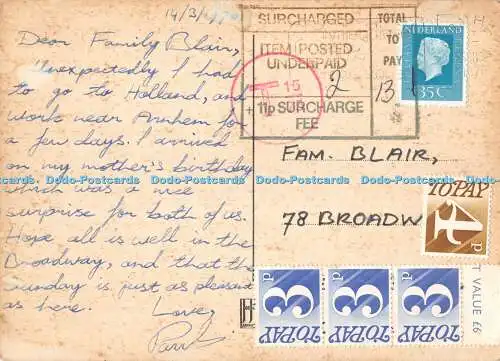 14/3/
Dear Family Blair,
Unexpectedly I had
to go to Holland, and
work near Arnhem for
a few days. I arrived
on my mother's birthday
which was a nice
surprise for both of us.
Hope all is well in the
Broadway, and that the
Sunday is just as pleasant
as here.
Love,
SURCHARGED
ITEM POSTED
UNDERPAID
2
+ 11p SURCHARGE
FEE
TOTAL
TO
PAY
13
15
NEDERLAND
35 C
FAM. BLAIR,
78 BROADW
TO PAY
4p
3p
TO PAY
3p
TO PAY
3p
TO PAY
T VALUE £6
Dodo-Postcards Dodo-Postcards Dodo-Postcards Dodo-Postcards